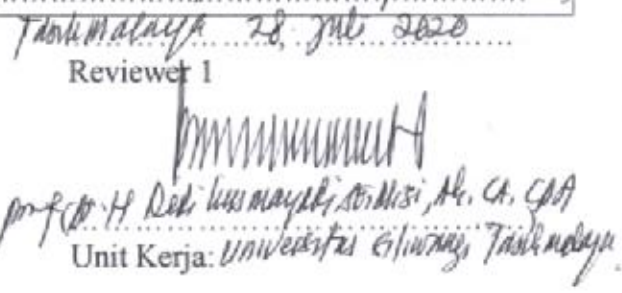 Tasikmalaya 28, Juli 2020
Reviewer 1
Prof. Dr. H Dedi Kusmayadi, SE., M.Si, Ak. CA. CPA
Unit Kerja: Universitas Siliwangi Tasikmalaya